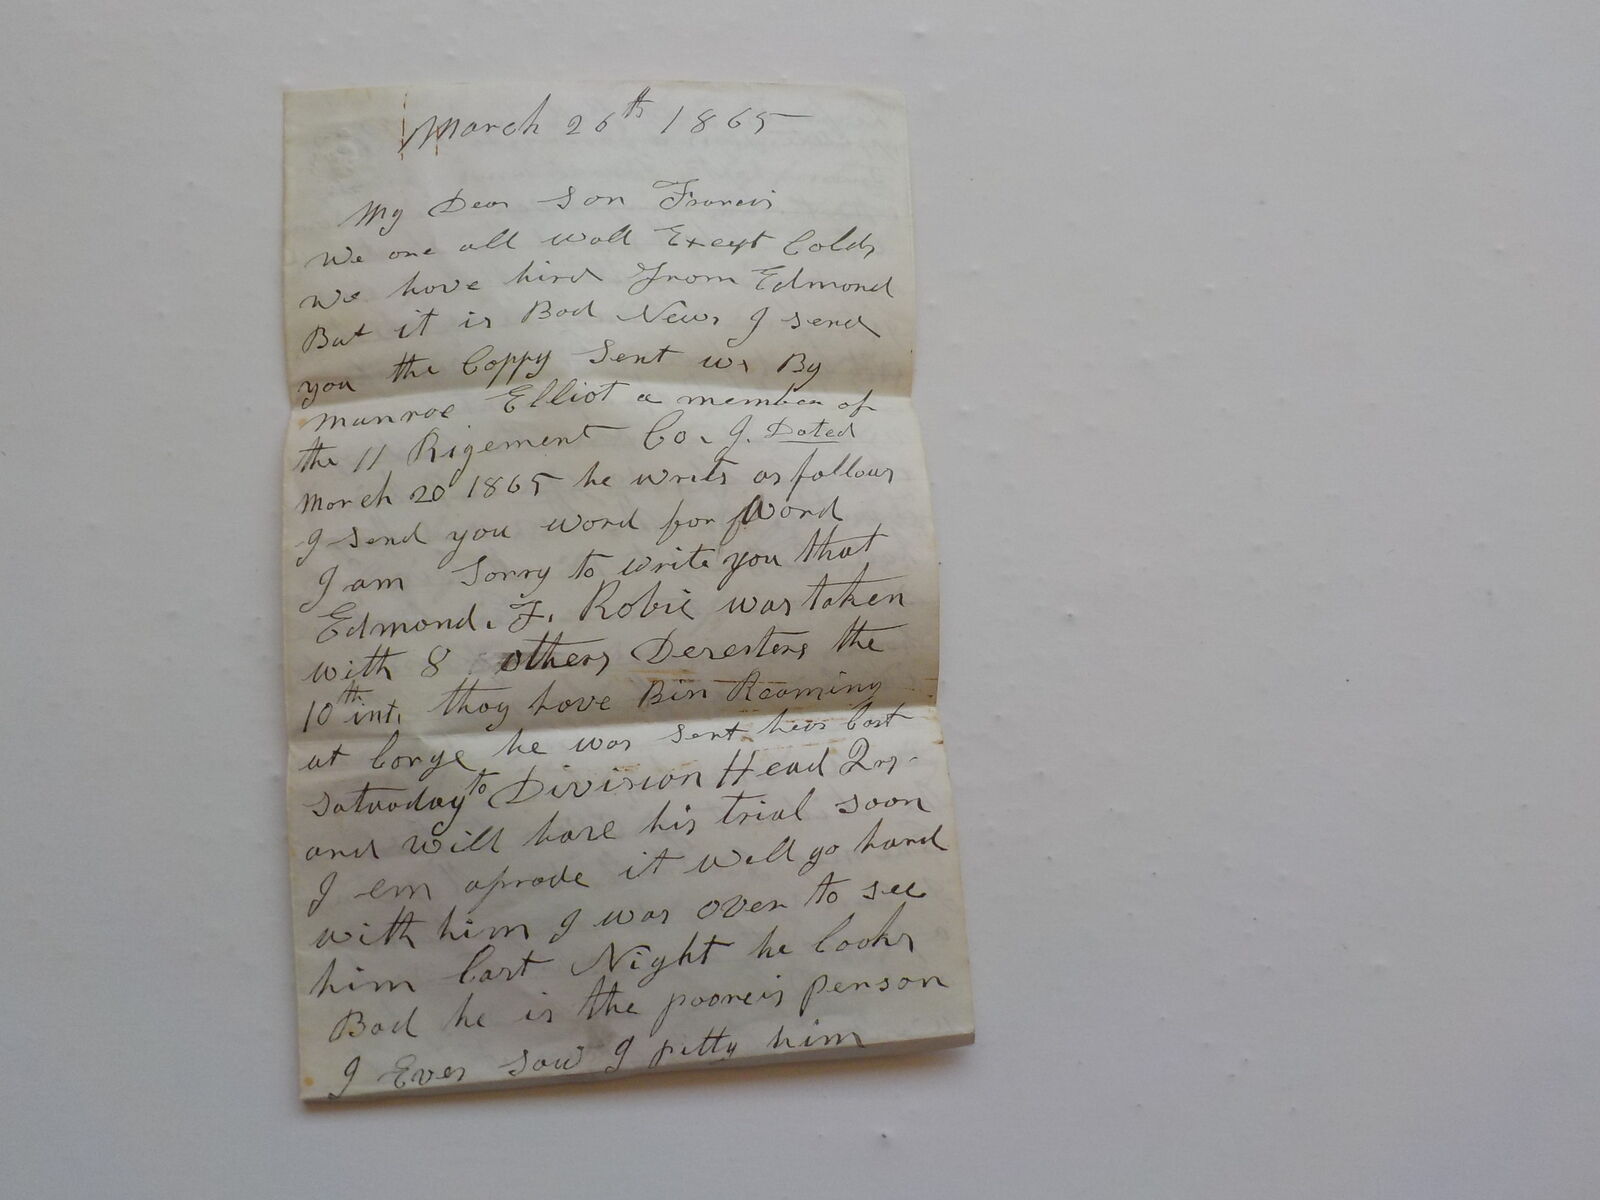 March 26th 1865
My Dear Son Francis
We are all wall Except Colds
we have hird From Edmond
But it is Bad News I send
you the Coppy Sent us By
Munroe Elliot a member of
the 11 Rigement Co. I. Dated
March 20 1865 he writs as follows
I send you word for Word
I am Sorry to write you that
Edmond. F. Robie was taken
with 8 others Deserters the
10th int. thay have Bin Roaming
at Large he was sent hear Last
Saturaday to Division Head Qrs.
and will have his trial soon
I em afrade it will go hard
with him I was over to see
him Last Night he Looks
Bad he is the pooreis person
I Ever saw I pitty him